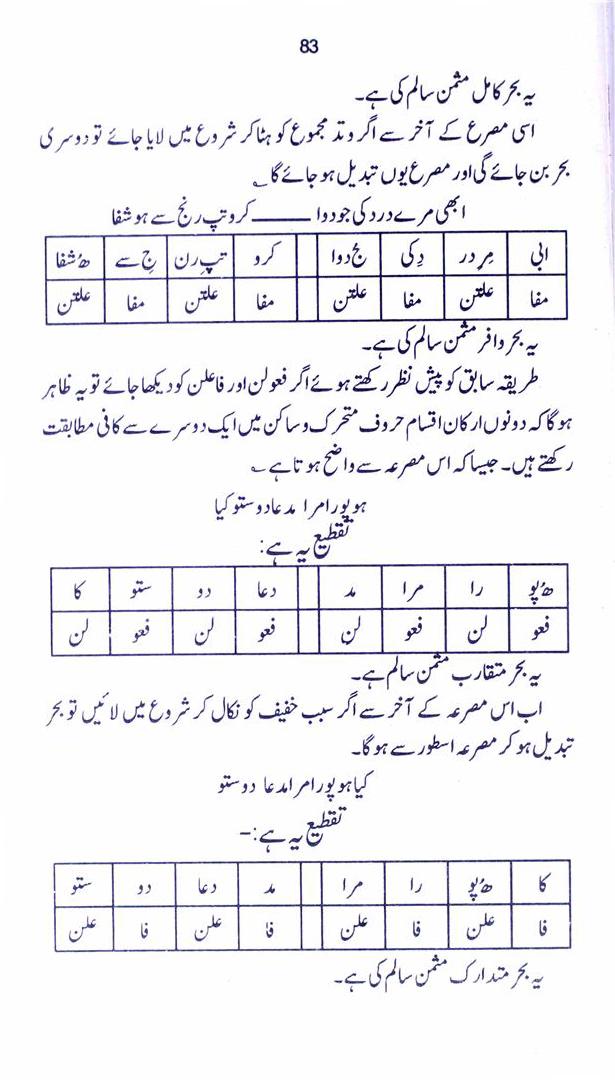 83
یہ بحر کامل مثمن سالم کی ہے۔
اسی مصرع کے آخر سے اگر وتد مجموع کو ہٹا کر شروع میں لایا جائے تو دوسری
بحر بن جائے گی اور مصرع یوں تبدیل ہو جائے گا ؎
ابھی مرے درد کی جو دوا ــــــــــ کرو تپ رنج سے ہو شفا
ابی | مِر در | دِکی | جُ دوا | کرو | تپِ رن | جِ سے | ھُ شفا
مفا | علتن | مفا | علتن | مفا | علتن | مفا | علتن
یہ بحر وافر مثمن سالم کی ہے۔
طریقہ سابق کو پیش نظر رکھتے ہوئے اگر فعولن اور فاعلن کو دیکھا جائے تو یہ ظاہر
ہوگا کہ دونوں ارکان اقسام حروف متحرک و ساکن میں ایک دوسرے سے کافی مطابقت
رکھتے ہیں۔ جیسا کہ اس مصرعہ سے واضح ہوتا ہے ؎
ہو پورا مرا مدعا دوستو کیا
تقطیع یہ ہے:
ھُ پو | را | مرا | مد | دعا | دو | ستو | کا
فعو | لن | فعو | لن | فعو | لن | فعو | لن
یہ بحر متقارب مثمن سالم ہے۔
اب اس مصرعہ کے آخر سے اگر سبب خفیف کو نکال کر شروع میں لائیں تو بحر
تبدیل ہو کر مصرعہ اسطور سے ہوگا۔
کیا ہو پورا مرا مدعا دوستو
تقطیع یہ ہے:-
کا | ھُ پو | را | مرا | مد | دعا | دو | ستو
فا | علن | فا | علن | فا | علن | فا | علن
یہ بحر متدارک مثمن سالم کی ہے۔